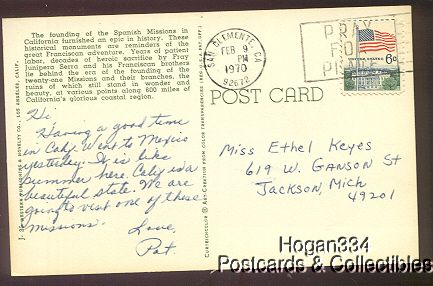 The founding of the Spanish Missions in
California furnished an epic in history. These
historical monuments are reminders of the
great Franciscan adventure. Yet of patient
labor, decades of heroic sacrifice by Fray
Junipera Serro and his Franciscan brothers
lie behind the era of the founding of the
twenty-one Missions and their neophytes, the
ruins of which still stand in wonder and
beauty, at various points along 600 miles of
California's glorious coastal region.
Hi,
Having a good time
in Caly. Went to Mexico
yesterday. It is like
summer here. Caly is a
beautiful state. We are
going to visit one of these
missions.
Love,
Pat.
SAN CLEMENTE, CA
FEB 9
PM
1970
92672
PRAY
FOR
6c
POST CARD
Miss Ethel Keyes
619 W. Ganson St
Jackson, Mich
49201
Hogan334
Postcards & Collectibles